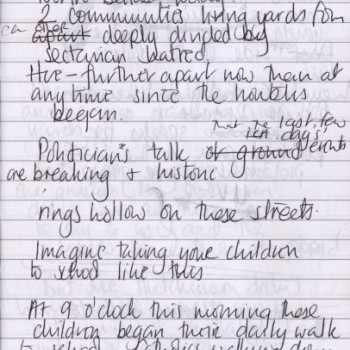 communities living yards from
deeply divided by
sectarian hatred.
Here - further apart now than at
any time since the troubles
began.
that the last few
ten days
Politician's talk of ground events
are breaking + historic
rings hollow on these streets.
Imagine taking your children
to school like this
At 9 o'clock this morning these
children began their daily walk
to school